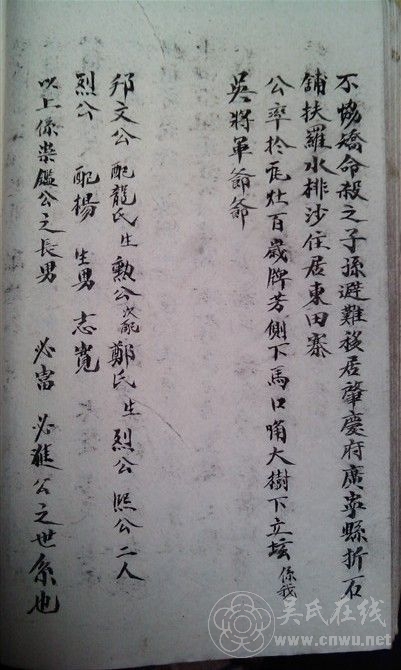 不協矯命殺之子孫避難移居肇慶府廣寧縣折石
舖扶羅水排沙住居東田寨
公率於瓦灶百歲牌芳側下馬口隋大樹下立坛係我
吳將軍爺爺
邦文公 配龍氏生 勲公次配鄭氏生 烈公 熙公二人
烈公 配楊 生男 志寬
以上係崇鑑公之長男 必富 必進公之世系也
吴氏在线
www.cnwu.net